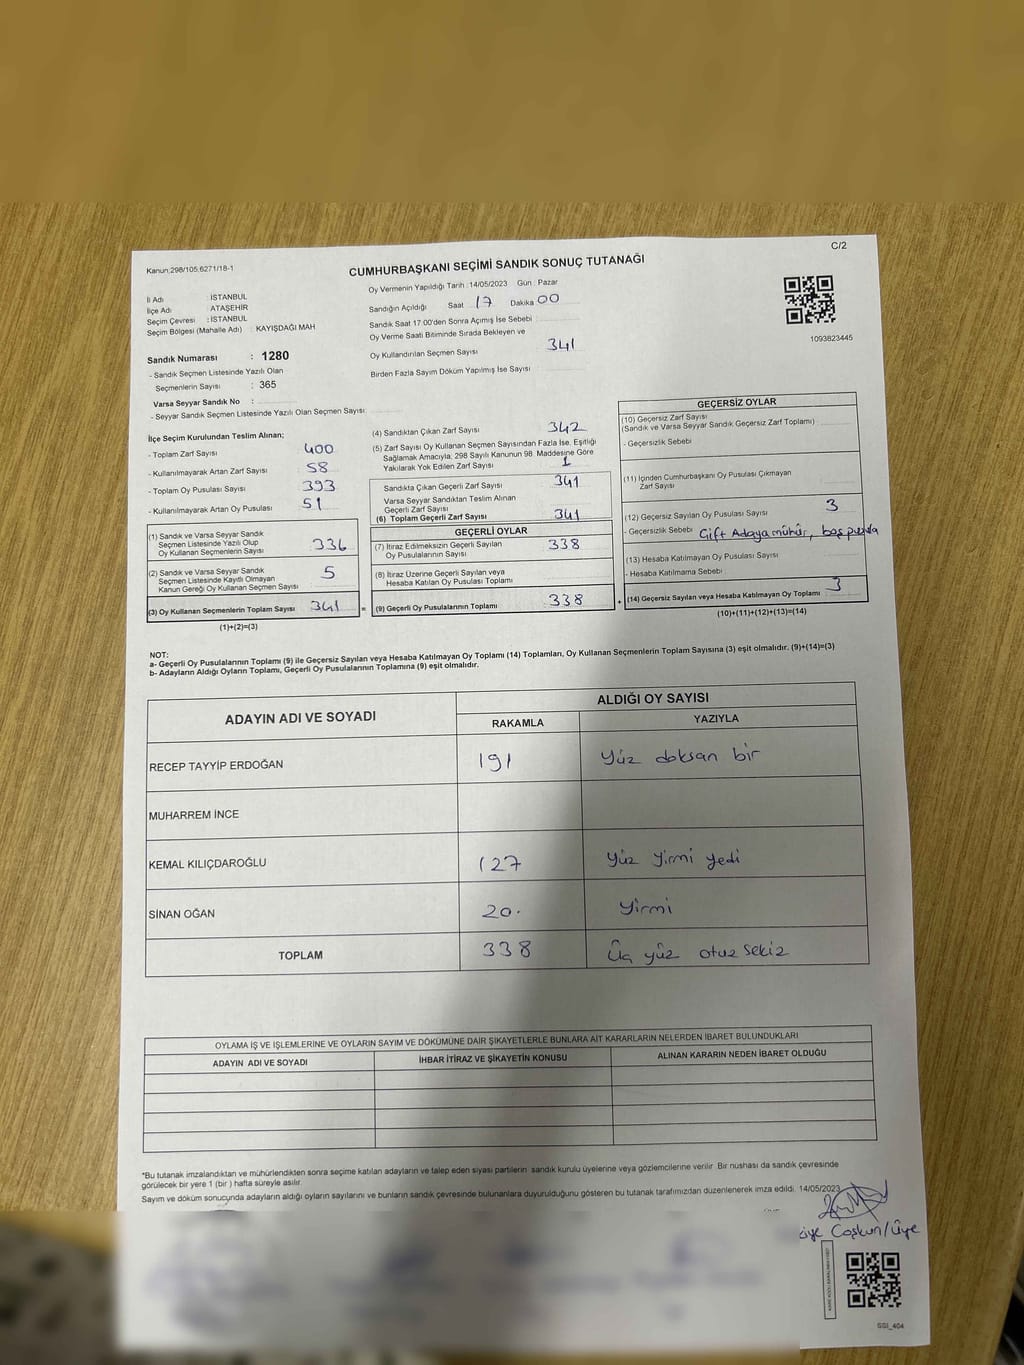 C/2
Kanun,298/105,6271/18-1
CUMHURBAŞKANI SEÇİMİ SANDIK SONUÇ TUTANAĞI
İl Adı : İSTANBUL
İlçe Adı : ATAŞEHİR
Seçim Çevresi : İSTANBUL
Seçim Bölgesi (Mahalle Adı) : KAYIŞDAĞI MAH
Sandık Numarası : 1280
- Sandık Seçmen Listesinde Yazılı Olan
Seçmenlerin Sayısı : 365
Varsa Seyyar Sandık No :
- Seyyar Sandık Seçmen Listesinde Yazılı Olan Seçmen Sayısı:
Oy Vermenin Yapıldığı Tarih : 14/05/2023 Gün : Pazar
Sandığın Açıldığı Saat 17 Dakika 00
Sandık Saat 17:00'den Sonra Açımış İse Sebebi :
Oy Verme Saati Bitiminde Sırada Bekleyen ve
Oy Kullandırılan Seçmen Sayısı 341
Birden Fazla Sayım Döküm Yapılmış İse Sayısı :
1093823445
İlçe Seçim Kurulundan Teslim Alınan;
- Toplam Zarf Sayısı 400
- Kullanılmayarak Artan Zarf Sayısı 58
- Toplam Oy Pusulası Sayısı 393
- Kullanılmayarak Artan Oy Pusulası 51
(1) Sandık ve Varsa Seyyar Sandık
Seçmen Listesinde Yazılı Olup
Oy Kullanan Seçmenlerin Sayısı 336
(2) Sandık ve Varsa Seyyar Sandık
Seçmen Listesinde Kayıtlı Olmayan
Kanun Gereği Oy Kullanan Seçmen Sayısı 5
(3) Oy Kullanan Seçmenlerin Toplam Sayısı 341 =
(1)+(2)=(3)
(4) Sandıktan Çıkan Zarf Sayısı 342
(5) Zarf Sayısı Oy Kullanan Seçmen Sayısından Fazla İse, Eşitliği
Sağlamak Amacıyla; 298 Sayılı Kanunun 98. Maddesine Göre
Yakılarak Yok Edilen Zarf Sayısı 1
Sandıkta Çıkan Geçerli Zarf Sayısı 341
Varsa Seyyar Sandıktan Teslim Alınan
Geçerli Zarf Sayısı
(6) Toplam Geçerli Zarf Sayısı 341
GEÇERLİ OYLAR
(7) İtiraz Edilmeksizin Geçerli Sayılan
Oy Pusulalarının Sayısı 338
(8) İtiraz Üzerine Geçerli Sayılan veya
Hesaba Katılan Oy Pusulası Toplamı
(9) Geçerli Oy Pusulalarının Toplamı 338 +
GEÇERSİZ OYLAR
(10) Geçersiz Zarf Sayısı
(Sandık ve Varsa Seyyar Sandık Geçersiz Zarf Toplamı)
- Geçersizlik Sebebi
(11) İçinden Cumhurbaşkanı Oy Pusulası Çıkmayan
Zarf Sayısı
(12) Geçersiz Sayılan Oy Pusulası Sayısı 3
- Geçersizlik Sebebi Çift Adaya mühür, boş pusula
(13) Hesaba Katılmayan Oy Pusulası Sayısı
- Hesaba Katılmama Sebebi
(14) Geçersiz Sayılan veya Hesaba Katılmayan Oy Toplamı 3
(10)+(11)+(12)+(13)=(14)
NOT:
a- Geçerli Oy Pusulalarının Toplamı (9) ile Geçersiz Sayılan veya Hesaba Katılmayan Oy Toplamı (14) Toplamları, Oy Kullanan Seçmenlerin Toplam Sayısına (3) eşit olmalıdır. (9)+(14)=(3)
b- Adayların Aldığı Oyların Toplamı, Geçerli Oy Pusulalarının Toplamına (9) eşit olmalıdır.
ADAYIN ADI VE SOYADI
ALDIĞI OY SAYISI
RAKAMLA YAZIYLA
RECEP TAYYİP ERDOĞAN 191 Yüz doksan bir
MUHARREM İNCE
KEMAL KILIÇDAROĞLU 127 Yüz yirmi yedi
SİNAN OĞAN 20. Yirmi
TOPLAM 338 Üç yüz otuz sekiz
OYLAMA İŞ VE İŞLEMLERİNE VE OYLARIN SAYIM VE DÖKÜMÜNE DAİR ŞİKAYETLERLE BUNLARA AİT KARARLARIN NELERDEN İBARET BULUNDUKLARI
ADAYIN ADI VE SOYADI İHBAR İTİRAZ VE ŞİKAYETİN KONUSU ALINAN KARARIN NEDEN İBARET OLDUĞU
*Bu tutanak imzalandıktan ve mühürlendikten sonra seçime katılan adayların ve talep eden siyasi partilerin sandık kurulu üyelerine veya gözlemcilerine verilir. Bir nüshası da sandık çevresinde
görülecek bir yere 1 (bir ) hafta süreyle asılır.
Sayım ve döküm sonucunda adayların aldığı oyların sayılarını ve bunların sandık çevresinde bulunanlara duyurulduğunu gösteren bu tutanak tarafımızdan düzenlenerek imza edildi. 14/05/2023
Coşkun/Üye
SSI_404